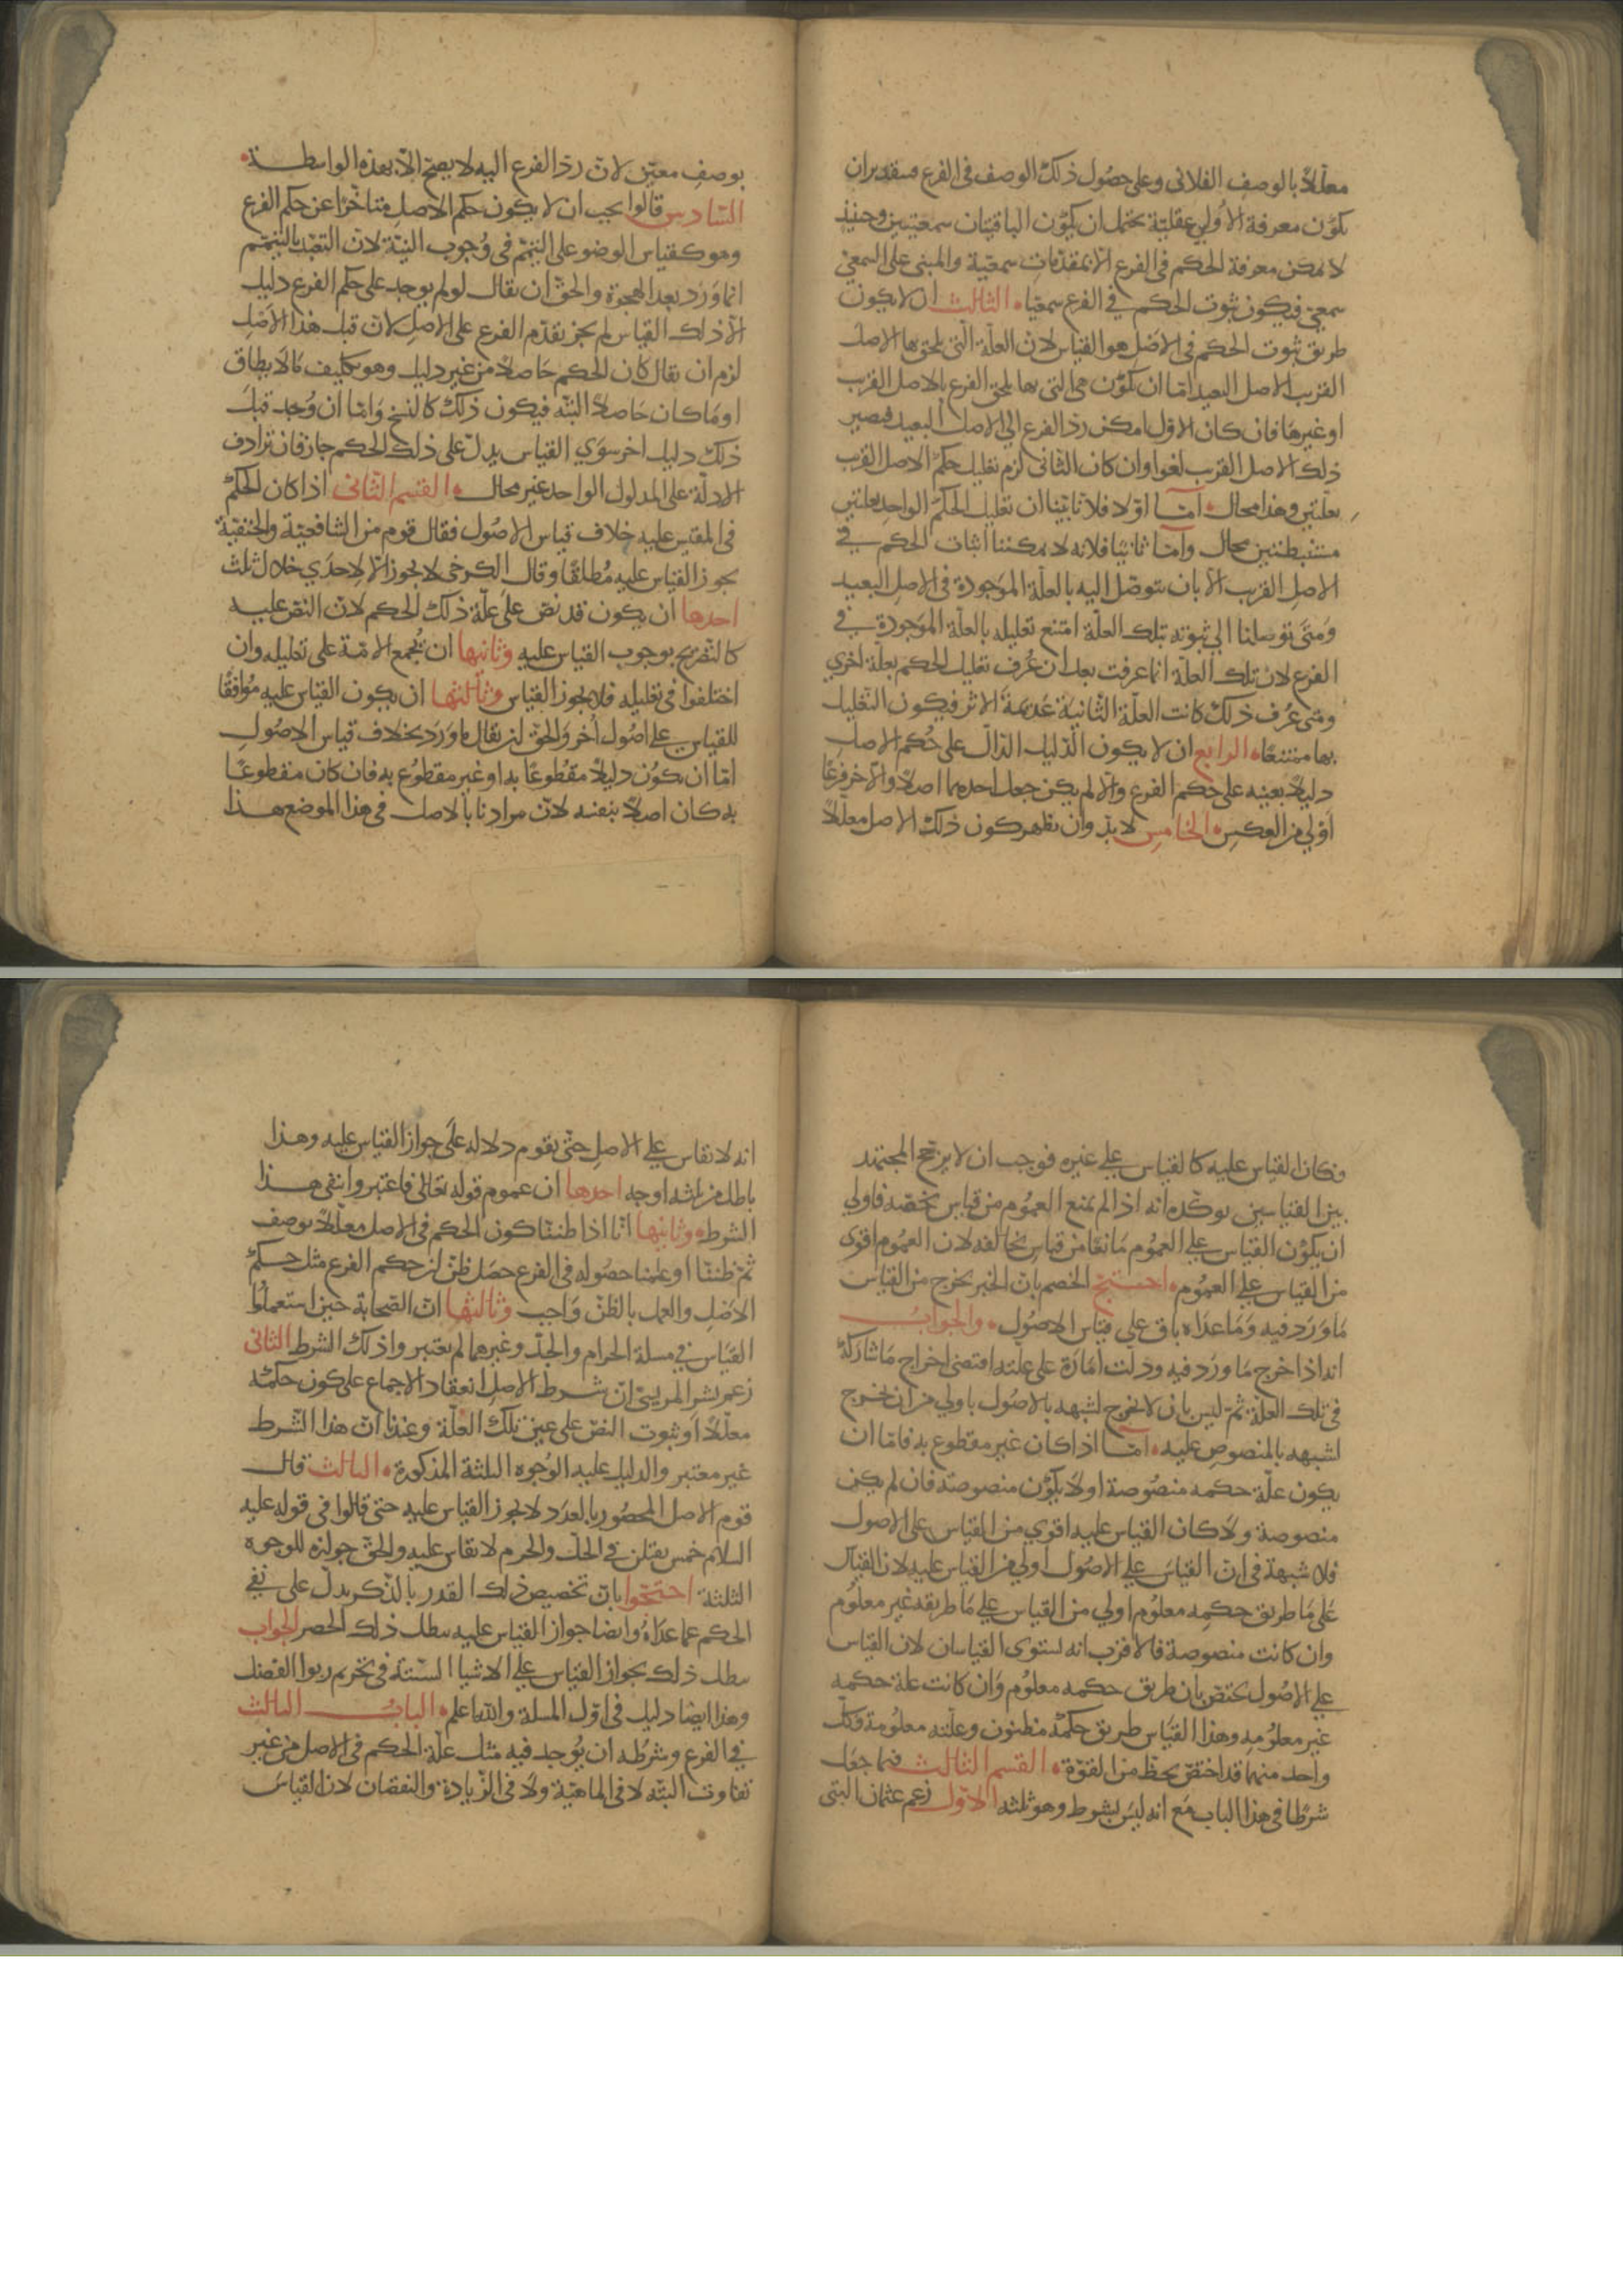 معلّلًا بالوصف الفلاني وعلى حصُول ذلك الوصف في الفرع فبتقدير ان
يكون معرفة الاُولي عقليّة يحتمل ان يكون الباقيتان سمعيتين وحينئذ
لا يمكن معرفة الحكم في الفرع الّا بمقدّمات سمعية والمبنى على السمعيّ
سمعيّ فيكون ثبوت الحكم في الفرع سمعيّا الثالث ان لا يكون
طريق ثبوت الحكم في الاصل هو القياس لان العلّة التي يلحق بها الاصل
القريب بالاصل البعيد امّا ان تكون هي التي بها يلحق الفرع بالاصل القريب
او غيرها فان كان الاوّل امكن ردّ الفرع الي الاصل البعيد فيصير
ذلك الاصل القريب لغوا وان كان الثاني لزم تعليل حكم الاصل القريب
بعلّتين وهذا محال امّا اوّلا فلما بيّنا ان تعليل الحكم الواحد بعلتين
مستنبطتين محال وامّا ثانيًا فلانه لا يمكننا اثبات الحكم في
الاصل القريب الا بان نتوصّل اليه بالعلّة الموجودة في الاصل البعيد
ومتى توصلنا الي ثبوته بتلك العلّة امتنع تعليله بالعلّة الموجودة في
الفرع لان تلك العلّة انما عرفت بعد ان عُرف تعليل الحكم بعلّة اخري
ومتى عُرف ذلك كانت العلّة الثانية عديمة الاثر فيكون التعليل
بها ممتنعًا الرابع ان لا يكون الدّليل الدّال على حُكم الاصل
دليلًا بعينه على حكم الفرع والا لم يكن جعل احدهما اصلًا والآخر فرعًا
اولي من العكس الخامس لا بدّ وان يظهر كون ذلك الاصل معلّلًا
بوصفٍ معيّن لانّ ردّ الفرع اليه لا يصحّ الّا بهذه الواسطة
السّادس قالوا يجب ان لا يكون حكم الاصل متأخّرًا عن حكم الفرع
وهو كقياس الوضو على التيمّم في وُجوب النيّة لانّ التعبّد بالتيمّم
انما وَرَد بعد الهجرة والحقّ ان يقال لو لم يوجد على حكم الفرع دليل
الّا ذلك القياس لم يجز تقدّم الفرع على الاصل لانّ قبل هذا الاصل
لزم ان يقال كان الحكم حَاصلًا من غير دليل وهو تكليف مالا يطاق
او ما كان حاصلًا البتّه فيكون ذلك كالنسخ وامّا ان وُجد قبل
ذلك دليل اخر سوَي القياس يدلّ على ذلك الحكم جاز فان ترادف
الادلّة على المدلول الواحد غير محال القسم الثّاني اذا كان الحكم
في المقيس عليه خلاف قياس الاصُول فقال قوم من الشافعيّة والحنفيّة
يجوز القياس عليه مُطلقًا وقال الكرخي لا يجوز الّا لاحدَي خلال ثلث
احدها ان يكون قد نصّ على علّة ذلك الحكم لانّ النصّ عليه
كالتّصريح بوجوب القياس عليه وثانيها ان تُجمع الامّة على تعليله وان
اختلفوا في تعليله فلا يجوز القياس وثالثها ان يكون القياس عليه مُوافقًا
للقياس على اصُول اُخر والحقّ ان يقال ما ورَد بخلاف قياس الاصُول
امّا ان يكوُن دليلًا مقطوعًا به او غير مقطوُع به فان كان مقطوعًا
به كان اصلًا بنفسه لانّ مرادنا بالاصل في هذا الموضع هذا
وكان القياس عليه كالقياس على غيره فوجب ان لا يرجّح المجتهد
بين القياسين يوكّده انه اذا لم يمنع العموُم من قياس يخصّه فاولي
ان يكوُن القياس على العموُم مَانعًا من قياس يخالفه لان العموُم اقوي
من القياس على العموُم احتجّ الخصم بانّ الخبر يخرج من القياس
مَا وَرَد فيه وَمَا عداه باق على قياس الاصُول والجوابُ
انه اذا اخرج مَا ورَد فيه ودلت اَمَارَة على علّته اقتضى اخراج مَا شاركهُ
في تلك العلّة ثمّ ليس بان لا يخرج لشبهه بالاصُول باولي من ان يخرج
لشبهه بالمنصوص عليه امّا اذا كان غير مقطوع به فامّا ان
يكون علّة حكمه منصُوصة او لا يكوُن منصوصة فان لم يكن
منصوصة ولا كان القياس عليه اقوي من القياس على الاصول
فلا شبهة في انّ القياسَ على الاصُول اولي من القياس عليه لان القياس
على مَا طريق حكمه معلُوم اولي من القياس على مَا طريقه غير معلُوم
وان كانت منصوصة فالاقرب انه يستوي القياسان لان القياس
على الاصُول يختصّ بان طريق حكمه معلُوم وَان كانت علة حكمه
غير معلُومه وهذا القيَاس طريق حكمهُ مظنون وعلّته معلُومة فكل
واحد منهما قد اختصّ بحظّ من القوّة القسم الثالث فيما جعل
شرطًا في هذا الباب مَع انه ليسَ بشرط وهو ثلثه الاوّل زعم عثمان البتّي
انه لا يقاس على الاصل حتّى يقوم دلالة على جواز القياس عليه وهذا
باطل من ثلثه اوجه احدها ان عموم قوله تعالى فاعتبروا ينفي هذا
الشرط وثانيها انّا اذا ظننّا كون الحكم في الاصل معلّلًا بوصف
ثمّ ظننّا او علمنا حصُوله في الفرع حصَل ظنّ ان حكم الفرع مثل حكم
الاصل والعمل بالظنّ وَاجب وثالثها انّ الصّحابة حين استعملُوا
القيَاس في مسلة الحرام والجدّ وغيرهما لم يعتبروا ذلك الشرط الثاني
زعم بشر المريسيّ انّ شرط الاصل انعقاد الاجماع على كون حكمه
معلّلًا او ثبوت النصّ على عين تلك العلّة وعندنا انّ هذا الشّرط
غير معتبر والدليل عليه الوُجوه الثلثة المذكورة الثالث قال
قوم الاصل المحصُور بالعدَد لا يجوز القياس عليه حتى قالوا في قوله عليه
السلام خمس يقتلن في الحلّ والحرم لا يقاس عليه والحقّ جوازه للوجوه
الثلثة احتجّوا بانّ تخصيص ذلك القدر بالذّكر يدلّ على نفي
الحكم عما عداهُ وايضا جواز القياس عليه يبطل ذلك الحصر الجواب
يبطل ذلك بجواز القياس على الاشيا الستّة في تحريم ربوا الفضل
وهذا ايضا دليل في اوّل المسلة والله اعلم البابُ الثالث
في الفرع وشرطُه ان يُوجد فيه مثل علّة الحكم في الاصل من غير
تفاوت البتّه لا في الماهيّة ولا في الزّيادة والنقصان لان القياسَ